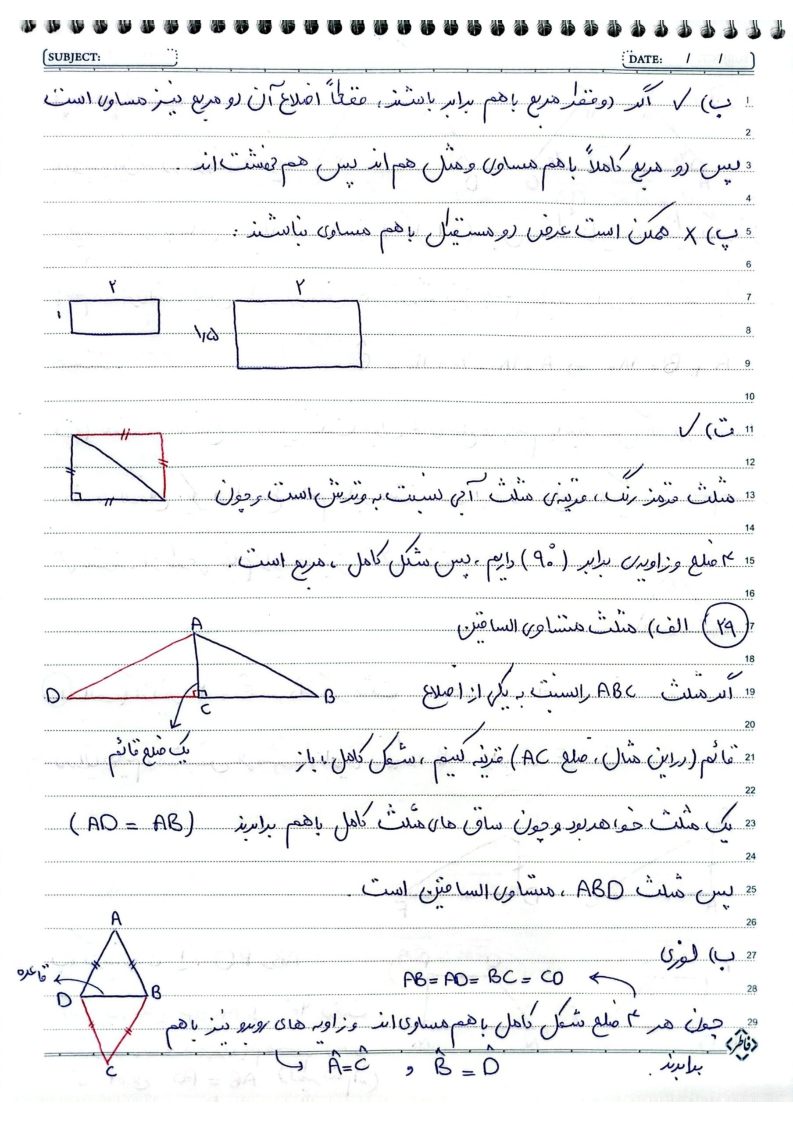 SUBJECT:
DATE: / /
ب) ✓ اگر دو قطر مربع باهم برابر باشند، قطعاً اضلاع آن دو مربع نیز مساوی است
پس دو مربع کاملاً باهم مساوی و مثل هم اند پس هم نهشت اند.
پ) x ممکن است عرض دو مستطیل باهم مساوی نباشند:
۲
۲
۱
۱٫۵
ت) ✓
مثلث قرمز رنگ، قرینه‌ی مثلث آبی نسبت به وترش است و چون
۴ ضلع و زاویه‌ی برابر (۹۰°) داریم، پس شکل کامل، مربع است.
۲۹ الف) مثلث متساوی الساقین
A
D
C
B
اگر مثلث ABC را نسبت به یکی از اضلاع
یک ضلع قائم
قائم (در این مثال، ضلع AC) قرینه کنیم، شکل کامل، باز
یک مثلث خواهد بود و چون ساق های مثلث کامل باهم برابرند (AD = AB)
پس مثلث ABD، متساوی الساقین است.
A
ب) لوزی
قاعده
AB = AD = BC = CD
D
B
چون هر ۴ ضلع شکل کامل باهم مساوی اند و زاویه های روبرو نیز باهم
برابرند.
C
Â = Ĉ و B̂ = D̂